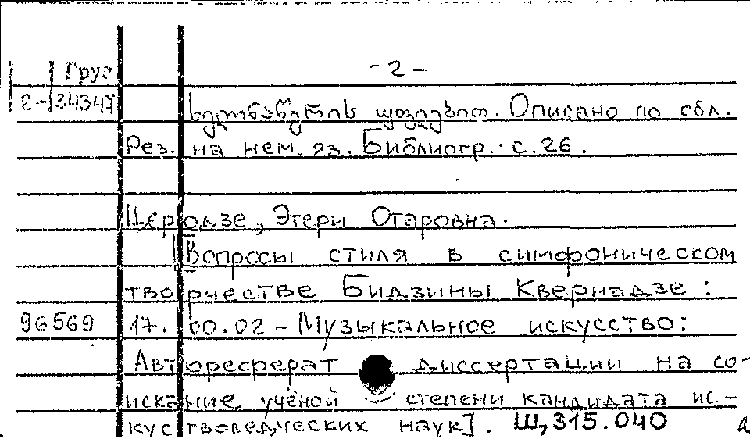 Груз - 2 -
2-34347 ხელოვნების დოქტორი. Описано по обл.
Рез. на нем. яз. Библиогр.: с. 26.
Церодзе, Этери Отаровна.
[Вопросы стиля в симфоническом
творчестве Бидзины Квернадзе:
96569 17.00.02 - Музыкальное искусство:
Автореферат диссертации на со-
искание учёной степени кандидата ис-
кусствоведческих наук]. Щ,315.040